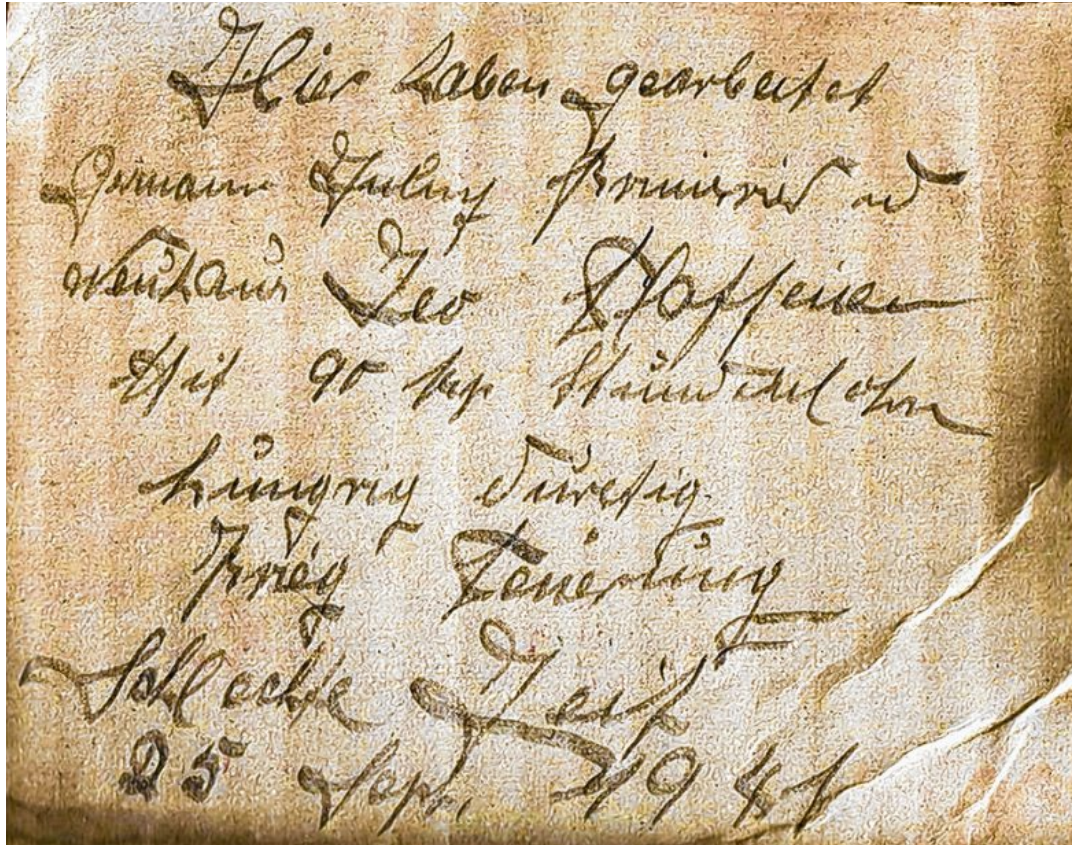 Hier haben gearbeitet
Germann
Neuhaus Leo Plaffeien
Mit 90 Rp. Stundenlohn
hungrig durstig
Krieg Teuerung
Schlechte Zeit
25 Sept. 1941